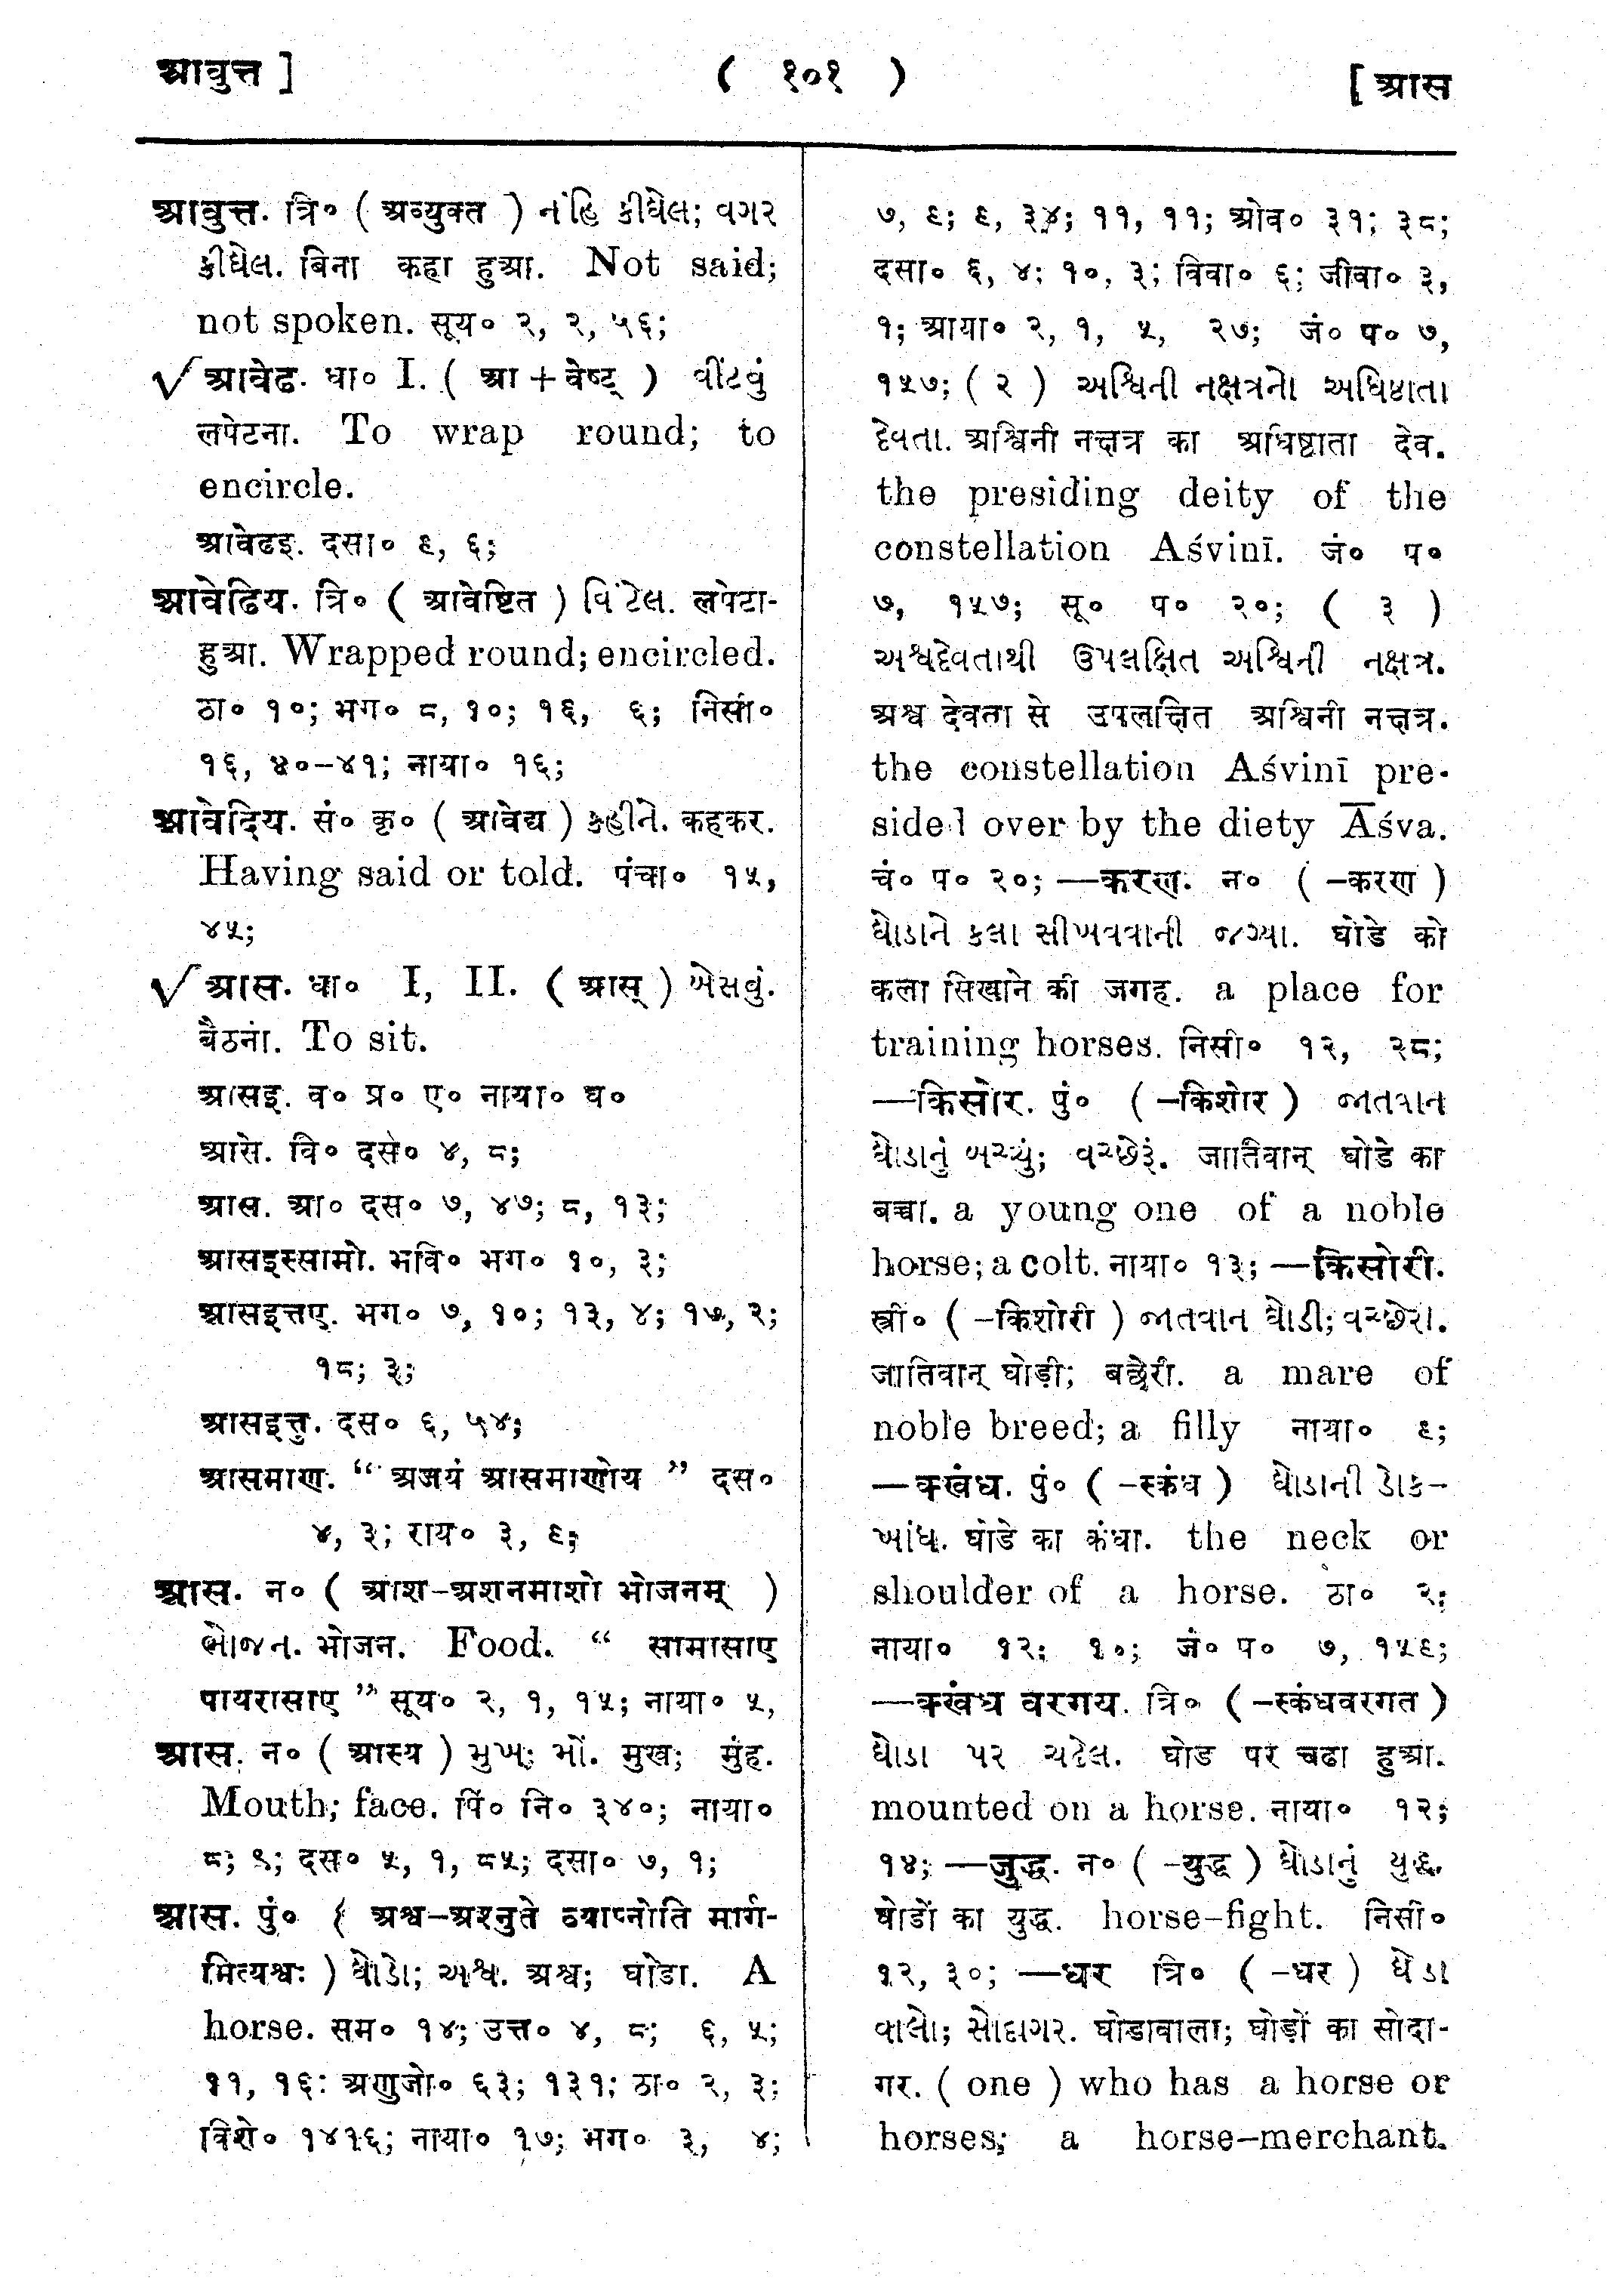 आवुत्त ]
( १०१ )
[ आस
आवुत्त. त्रि० ( अव्युक्त ) નંહિ કીધેલ; વગર
કીધેલ. बिना कहा हुआ. Not said;
not spoken. सूय० २, २, ५६;
√ आवेढ. धा० I. ( आ + वेष्ट् ) વીંટવું
लपेटना. To wrap round; to
encircle.
आवेढइ. दसा० ९, ६;
आवेढिय. त्रि० ( आवेष्टित ) વિંટેલ. लपेटा-
हुआ. Wrapped round; encircled.
ठा० १०; भग० ८, १०; १६, ६; निसी०
१६, ४०-४१; नाया० १६;
आवेदिय. सं० कृ० ( आवेद्य ) કહીને. कहकर.
Having said or told. पंचा० १५,
४५;
√ आस. धा० I, II. ( आस् ) બેસવું.
बैठनां. To sit.
आसइ. व० प्र० ए० नाया० ध०
आसे. वि० दस० ४, ८;
आस. आ० दस० ७, ४७; ८, १३;
आसइस्सामो. भवि० भग० १०, ३;
आसइत्तए. भग० ७, १०; १३, ४; १७, २;
१८; ३;
आसइत्तु. दस० ६, ५४;
आसमाण. “ अजयं आसमाणोय ” दस०
४, ३; राय० ३, ९;
आस. न० ( आश-अशनमाशो भोजनम् )
ભોજન. भोजन. Food. “ सामासाए
पायरासाए ” सूय० २, १, १५; नाया० ५,
आस. न० ( आस्य ) મુખ; મોં. मुख; मुंह.
Mouth; face. पिं० नि० ३४०; नाया०
८; ९; दस० ५, १, ८५; दसा० ७, १;
आस. पुं० ( अश्व-अश्नुते व्याप्नोति मार्ग-
मित्यश्वः ) ઘોડો; અશ્વ. अश्व; घोडा. A
horse. सम० १४; उत्त० ४, ८; ६, ५;
११, १६: अणुजो० ६३; १३१; ठा० २, ३;
विशे० १४१६; नाया० १७; भग० ३, ४;
७, ९; ९, ३४; ११, ११; ओव० ३१; ३८;
दसा० ६, ४; १०, ३; विवा० ६; जीवा० ३,
१; आया० २, १, ५, २७; जं० प० ७,
१५७; ( २ ) અશ્વિની નક્ષત્રનો અધિષ્ઠાતા
દેવતા. अश्विनी नक्षत्र का अधिष्ठाता देव.
the presiding deity of the
constellation Aśvinī. जं० प०
७, १५७; सू० प० २०; ( ३ )
અશ્વદેવતાથી ઉપલક્ષિત અશ્વિની નક્ષત્ર.
अश्व देवता से उपलक्षित अश्विनी नक्षत्र.
the constellation Aśvinī pre-
sided over by the diety Āśva.
चं० प० २०; —करण. न० ( -करण )
ઘોડાને કલા સીખવવાની જગ્યા. घोडे को
कला सिखाने की जगह. a place for
training horses. निसी० १२, २८;
—किसोर. पुं० ( -किशोर ) જાતવાન
ઘોડાનું બચ્ચું; વચ્છેરૂં. जातिवान् घोडे का
बच्चा. a young one of a noble
horse; a colt. नाया० १३; —किसोरी.
स्त्री० ( -किशोरी ) જાતવાન ઘોડી; વચ્છેરી.
जातिवान् घोड़ी; बछेरी. a mare of
noble breed; a filly नाया० ९;
—क्खंध. पुं० ( -स्कंध ) ઘોડાની ડોક-
ખાંધ. घोडे का कंधा. the neck or
shoulder of a horse. ठा० २;
नाया० १२; १०; जं० प० ७, १५९;
—क्खंध वरगय. त्रि० ( -स्कंधवरगत )
ઘોડા પર ચઢેલ. घोड पर चढा हुआ.
mounted on a horse. नाया० १२;
१४; —जुद्ध. न० ( -युद्ध ) ઘોડાનું યુદ્ધ.
घोडों का युद्ध. horse-fight. निसी०
१२, ३०; —धर त्रि० ( -धर ) ઘોડા
વાલો; સોદાગર. घोडावाला; घोड़ों का सोदा-
गर. ( one ) who has a horse or
horses; a horse-merchant.